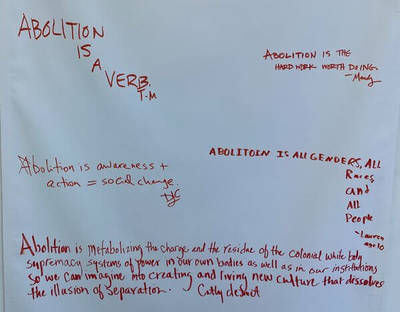 ABOLITION
IS
A
VERB.
T-M
ABOLITION IS THE
HARD WORK WORTH DOING.
-Mandy
Abolition is awareness +
action = social change.
ABOLITOIN IS ALL GENDERS, ALL
Races
and
All
People
-Lauren
age 10
Abolition is metabolizing the charge and the residue of the colonial white body
supremacy systems of power in our own bodies as well as in our institutions
so we can imagine into creating and living new culture that dissolves
the illusion of separation. Cathy